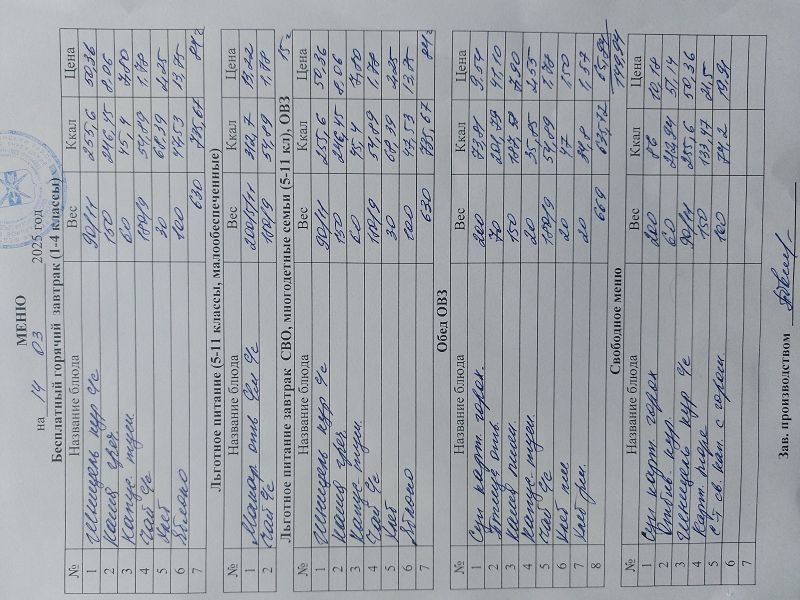 МЕНЮ
на 14 03 2025 год
Бесплатный горячий завтрак (1-4 классы)
№ Название блюда Вес Ккал Цена
1 Шницель кур с/с 90/11 255,6 50,36
2 Каша греч. 150 246,15 8.06
3 Капус туш. 60 45,4 7,80
4 Чай с/с 180/9 54,89 1.78
5 Хлеб 30 68.39 2.25
6 Яблоко 100 47.53 13.75
7 630 735,67 84 г
Льготное питание (5-11 классы, малообеспеченные)
№ Название блюда Вес Ккал Цена
1 Макар отв с/м с/с 200/5/11 312.7 13,22
2 Чай с/с 180/9 54,89 1.78
15 г
Льготное питание завтрак СВО, многодетные семьи (5-11 кл), ОВЗ
№ Название блюда Вес Ккал Цена
1 Шницель кур с/с 90/11 255,6 50,36
2 Каша греч 150 246,15 8.06
3 Капус туш. 60 45,4 7,80
4 Чай с/с 180/9 54,89 1.78
5 Хлеб 30 68,39 2.25
6 Яблоко 100 47,53 13.75
7 630 735,67 84 г
Обед ОВЗ
№ Название блюда Вес Ккал Цена
1 Суп карт горох. 200 73,81 9.54
2 Птица отв. 70 201,79 41,10
3 Каша пшен. 150 167,58 7.00
4 Капус туш. 20 35,85 2.55
5 Чай с/с 180/9 54,89 1.78
6 Хлеб пш 20 47 1.50
7 Хлеб рж. 20 34,8 1.57
8 660
Свободное меню
№ Название блюда Вес Ккал Цена
1 Суп карт горох 200 86 10.18
2 Отбив. кур. 60 57,14
3 Шницель кур с/с 90/11 255,6 50,36
4 Карт. пюре 150 133,47 21,5
5 С-т св. кап. с горош. 100 74,2 19.91
6
7
Зав. производством